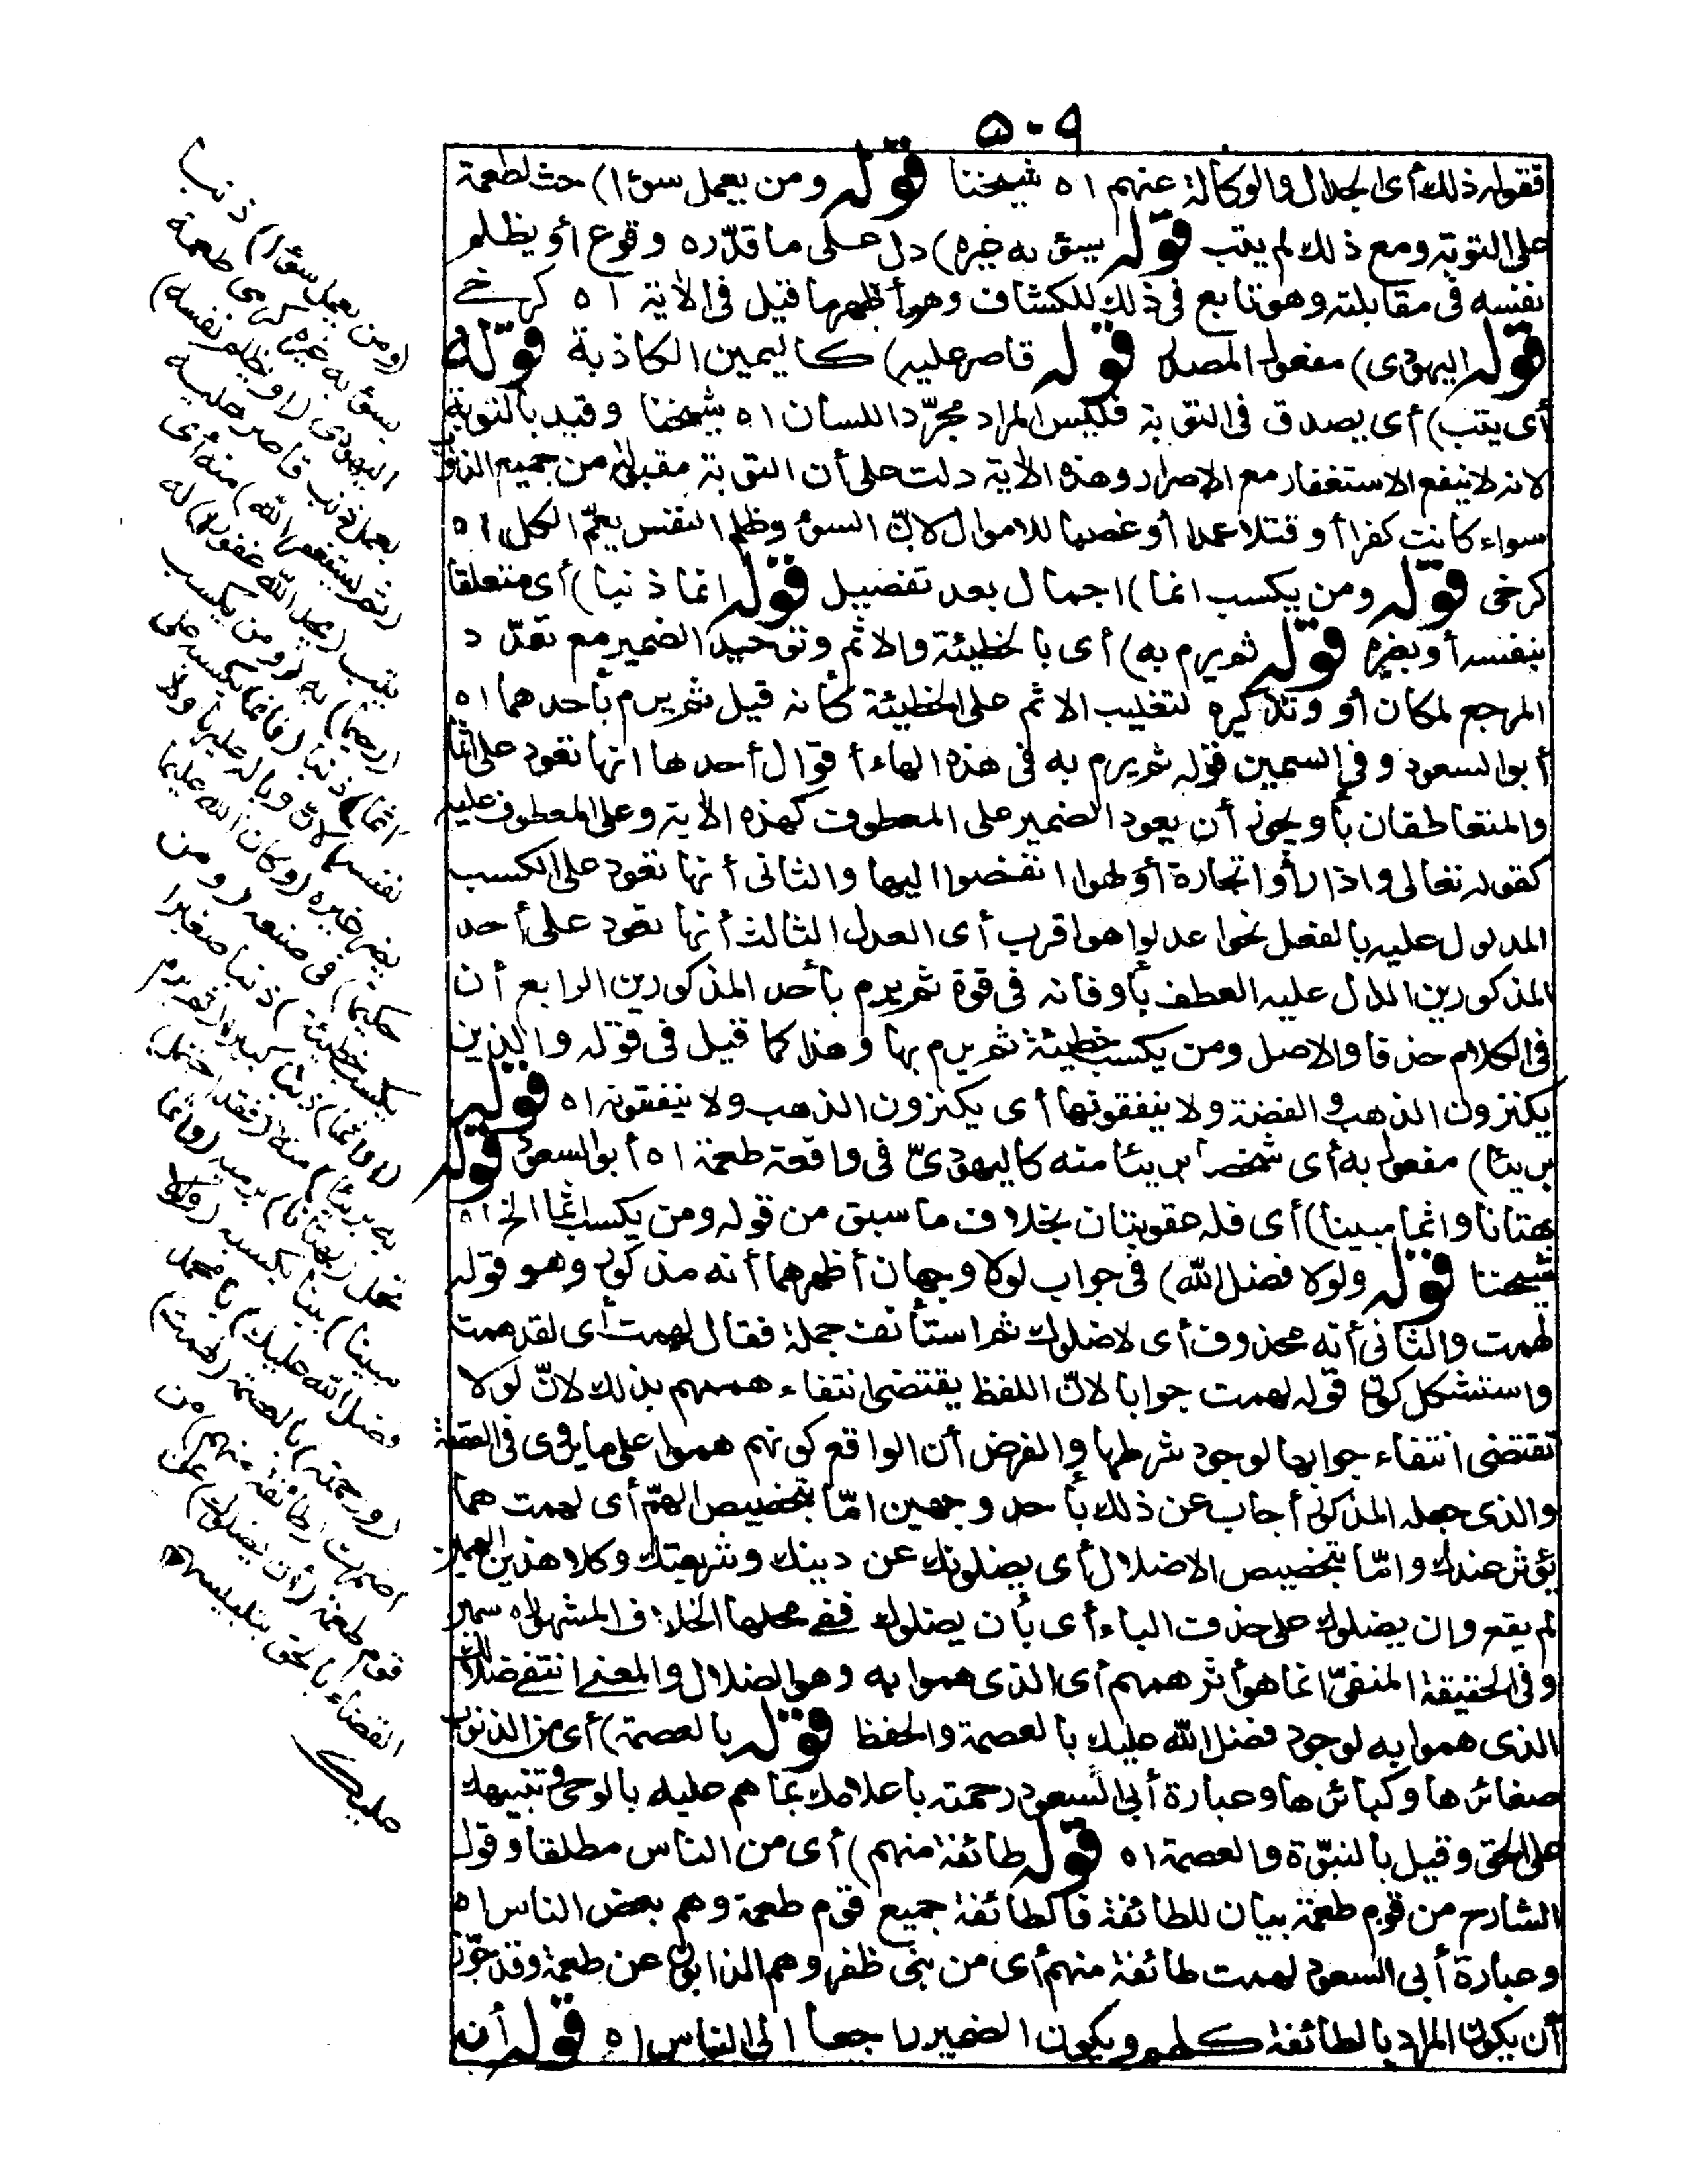 ٥٠٩
فقوله ذلك أى الجلال والوكالة عنهم ا ه شيخنا قوله ومن يعمل سوٓا) حث لطعمة
على التوبة ومع ذلك لم يتب قوله يسوٴ به غيره) دل على ما قدّره وقوع أو يظلم
نفسه فى مقابلته وهو تابع فى ذلك للكشاف وهو أظهر ما قيل فى الآية ا ه كرخى
قوله اليهودى) مفعول المصدر قوله قاصر عليه) كاليمين الكاذبة قوله
أى يتب) أى يصدق فى التوبة فليس المراد مجرّد اللسان ا ه شيخنا وقيد بالتوبة
لانه لا ينفع الاستغفار مع الاصرار وهذه الآية دلت على أن التوبة مقبولة من جميع الذنوب
سواء كانت كفرا أو قتلا عمدا أو غصبا للاموال لانّ السوٴ وظلم النفس يعمّ الكل ا ه
كرخى قوله ومن يكسب اثما) اجمال بعد تفصيل قوله اثما ذنبا) أى متعلقا
بنفسه أو بغيره قوله ثم يرم به) أى بالخطيئة والاثم وتوحيد الضمير مع تعدّد
المرجع لمكان أو وتذكيره لتغليب الاثم على الخطيئة كأنه قيل ثم يرم بأحدهما ا ه
أبو السعود وفى السمين قوله ثم يرم به فى هذه الهاء أقوال أحدها انها تعود على اثما
والمتعاطفان بأو يجوز أن يعود الضمير على المعطوف كهذه الآية وعلى المعطوف عليه
كقوله تعالى واذا رأوا تجارة أو لهوا انفضوا اليها والثانى أنها تعود على الكسب
المدلول عليه بالفعل نحو اعدلوا هو اقرب أى العدل الثالث أنها تعود على أحد
المذكورين الدال عليه العطف بأو فانه فى قوة ثم يرم بأحد المذكورين الرابع أن
فى الكلام حذفا والاصل ومن يكسب خطيئة ثم يرم بها وهذا كما قيل فى قوله والذين
يكنزون الذهب والفضة ولا ينفقونها أى يكنزون الذهب ولا ينفقونه ا ه قوله
بريئا) مفعول به أى شخصا بريئا منه كاليهودىّ فى واقعة طعمة ا ه أبو السعود قوله
بهتانا واثما مبينا) أى فله عقوبتان بخلاف ما سبق من قوله ومن يكسب اثما الخ ا ه
شيخنا قوله ولولا فضل الله) فى جواب لولا وجهان أظهرهما أنه مذكور وهو قوله
لهمت والثانى أنه محذوف أى لاضلوك ثم استأنف جملة فقال لهمت أى لقد همت
واستشكل كون قوله لهمت جوابا لانّ اللفظ يقتضى انتفاء همهم بذلك لانّ لولا
تقتضى انتفاء جوابها لوجود شرطها والفرض أن الواقع كونهم هموا على ما يروى فى القصة
والذى جعله المذكور أجاب عن ذلك بأحد وجهين امّا بتخصيص الهمّ أى لهمت هما
يؤثر عندك وامّا بتخصيص الاضلال أى يضلونك عن دينك وشريعتك وكلا هذين الهمين
لم يقع وان يضلوك على حذف الباء أى بأن يضلوك ففى محلها الخلاف المشهور ا ه سمين
وفى الحقيقة المنفىّ انما هو أثر همهم أى الذى هموا به وهو الضلال والمعنى انتفى ضلالك
الذى هموا به لوجود فضل الله عليك بالعصمة والحفظ قوله بالعصمة) أى من الذنوب
صغائرها وكبائرها وعبارة أبى السعود رحمته باعلامك بما هم عليه بالوحى وتنبيهك
على الحق وقيل بالنبوّة والعصمة ا ه قوله طائفة منهم) أى من الناس مطلقا وقول
الشارح من قوم طعمة بيان للطائفة فالطائفة جميع قوم طعمة وهم بعض الناس ا ه
وعبارة أبى السعود لهمت طائفة منهم أى من بنى ظفر وهم الذابون عن طعمة وقد جوّز
أن يكون المراد بالطائفة كلهم ويكون الضمير راجعا الى الناس ا ه قوله أن
(ومن يعمل سوٓا) ذنب
يسوٴ به غيره كرمى طعمة
اليهودى (أو يظلم نفسه)
يعمل ذنب قاصر عليه
(ثم يستغفر الله) منه أى
يتب (يجد الله غفورا) له
(رحيما) به (ومن يكسب
اثما) ذنبا (فانما يكسبه على
نفسه) لانّ وباله عليها ولا
يضر غيره (وكان الله عليما
حكيما) فى صنعه (ومن
يكسب خطيئة) ذنبا صغيرا
(أو اثما) ذنبا كبيرا (ثم يرم
به بريئا) منه (فقد احتمل)
تحمل (بهتانا) برميه (واثما
مبينا) بينا بكسبه (ولولا
فضل الله عليك) يا محمد
(ورحمته) بالعصمة (لهمت)
اضمرت (طائفة منهم) من
قوم طعمة (أن يضلوك) عن
القضاء بالحق بتلبيسهم
عليك